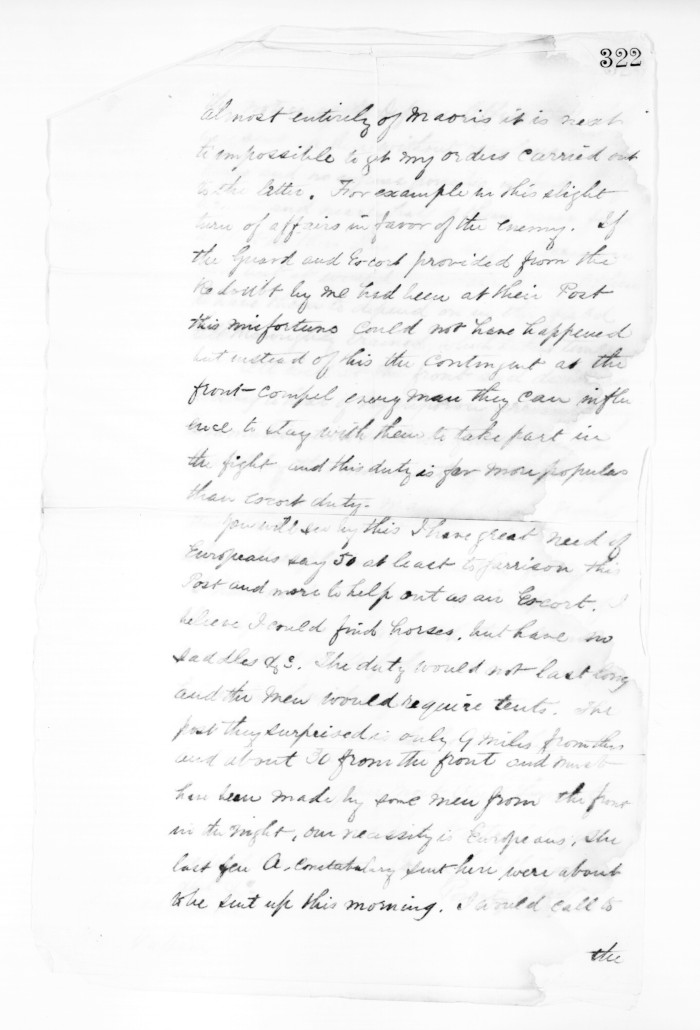 322
almost entirely of Maoris it is next
to impossible to get my orders carried out
to the letter. For example in this slight
turn of affairs in favor of the enemy. If
the Guard and Escort provided from the
Redoubt by me had been at their Post
this misfortune could not have happened
but instead of this the contingent at the
front compel every man they can influ
ence to stay with them to take part in
the fight and this duty is far more popular
than escort duty.
You will see by this I have great need of
Europeans say 50 at least to garrison this
Post and more to help out as an Escort. I
believe I could find horses, but have no
saddles &c. The duty would not last long
and the men would require tents. The
post they surprised is only 9 miles from this
and about 30 from the front and must
have been made by some men from the front
in the night, our necessity is Europeans, the
last few A. Constabulary sent here were about
to be sent up this morning. I would call to
the